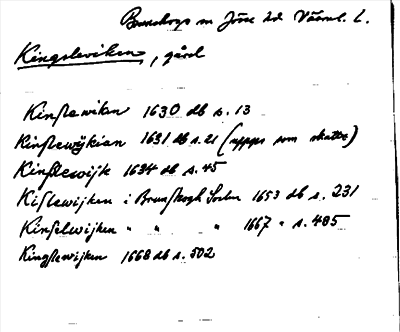 Brunskogs sn Jösse hd Värml. L.
Kingsleviken, gård
Kinslewikan 1630 db s. 13
Kinslewÿkian 1631 db s. 21 (uppges som skatte)
Kinslewijk 1634 db s. 45
Kislewijken i Brunskogh Sochn 1653 db s. 231
Kinselwijken " " " 1667 " s. 485
Kingslewijken 1668 db s. 502